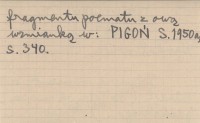 fragmentu poematu z ową
wzmianką w: PIGOŃ S. 1950a,
s. 340.